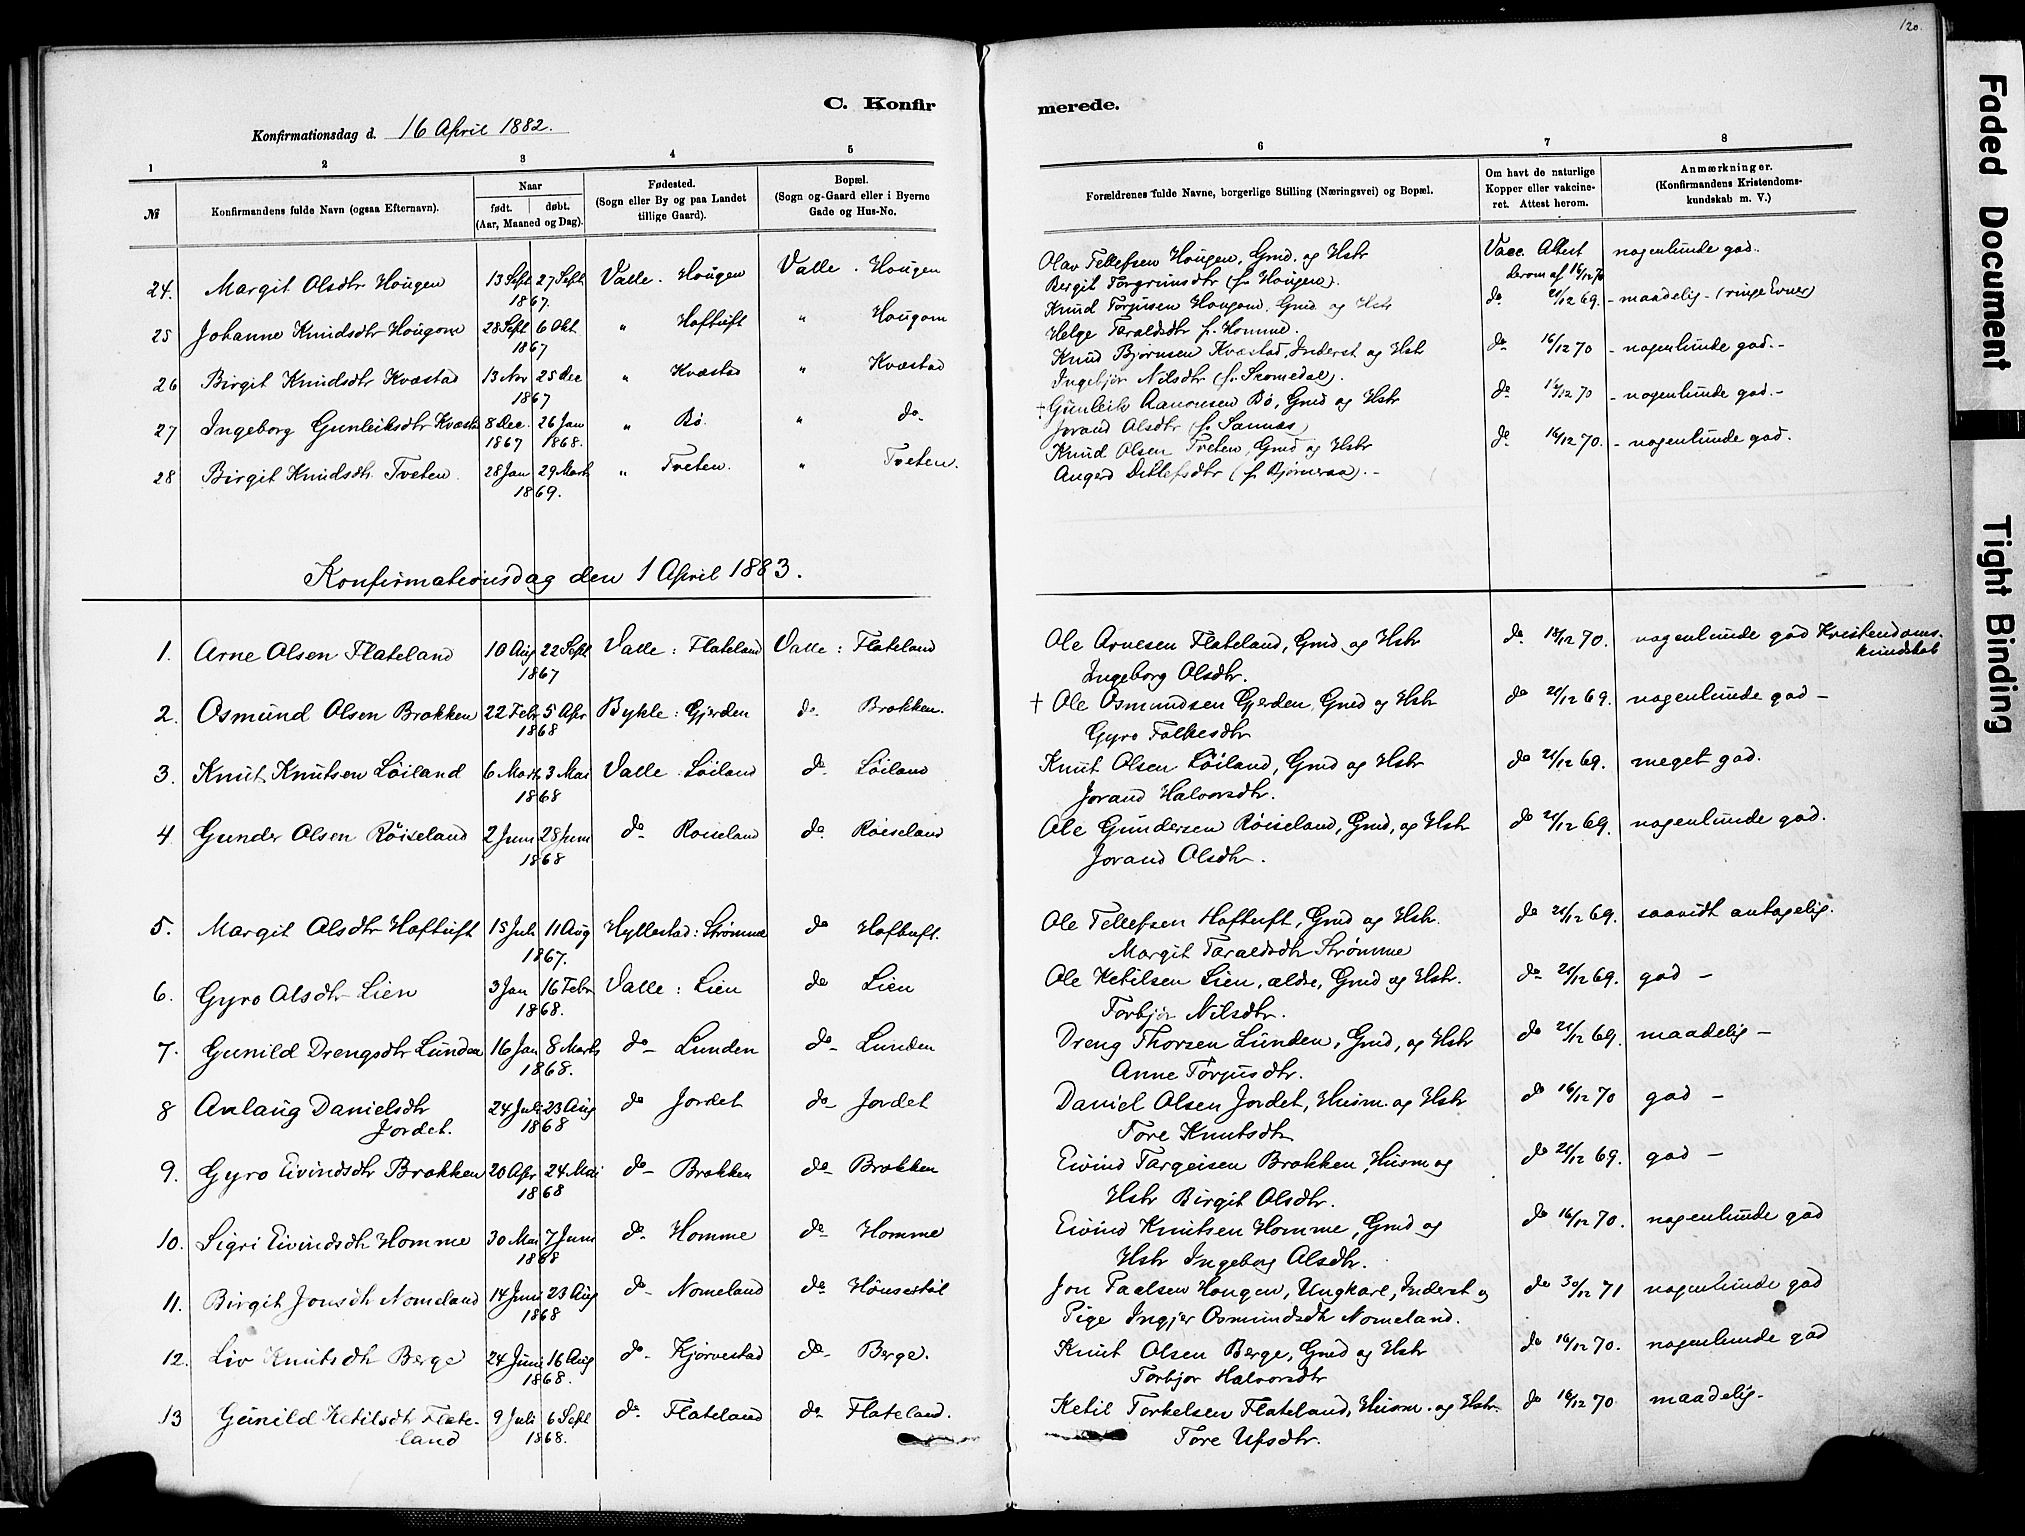 120.
C. Konfir
merede.
Konfirmationsdag d. 16 April 1882.
1 2 3 4 5 6 7 8
№ Konfirmandens fulde Navn (ogsaa Efternavn). Naar født. døbt. (Aar, Maaned og Dag). Fødested. (Sogn eller By og paa Landet tillige Gaard). Bopæl. (Sogn og Gaard eller i Byerne Gade og Hus-No. Forældrenes fulde Navne, borgerlige Stilling (Næringsvei) og Bopæl. Om havt de naturlige Kopper eller vakcineret. Attest herom. Anmærkninger. (Konfirmandens Kristendomskundskab m. V.)
24. Margit Olsdtr Hougen 13 Sept 27 Sept 1867. Valle. Hougen Valle. Hougen Olav Tellefsen Hougen, Gmd. og Hstr Vacc. Attest nogenlunde god.
Bergit Torgrimsdtr (f. Hougen). derom af 16/12 70
25 Johanne Knudsdtr Hougom 28 Sept 6 Okt 1867 " Hoftuft " Hougom Knud Torjusen Hougom, Gmd og Hstr do 21/12 69. - maadelig - (ringe Evner)
Helge Taraldsdtr f. Homme.
26 Birgit Knudsdtr Kvæstad 13 Nov 25 Dec 1867 " Kvæstad " Kvæstad Knud Bjørnsen Kvæstad, Inderst og Hstr do 16/12 70 - nogenlunde god. -
Ingebjør Nilsdtr (f. Skomedal).
27 Ingeborg Gunleiksdtr Kvæstad 8 Dec. 1867 26 Jan 1868. " Bø. " do. † Gunleik Aanonsen Bø, Gmd og Hstr do 16/12 70 - nogenlunde god. -
Jorand Olsdtr (f. Sannæs)
28 Birgit Knudsdtr. Tveten 28 Jan 29 Marts 1869. " Tveten. " Tveten. Knud Olsen Tveten, Gmd og Hstr do 16/12 70. - nogenlunde god.
Angerd Detlefsdtr (f. Bjørneraa). -
Konfirmationsdag den 1 April 1883.
1. Arne Olsen Flateland 10 Aug 22 Sept 1867 Valle: Flateland Valle: Flateland Ole Arnesen Flateland, Gmd og Hstr do 16/12 70. nogenlunde god Kristendoms-
kundskab
Ingeborg Olsdtr.
2. Osmund Olsen Brokken 22 Febr 5 Apr 1868 Bykle: Gjerden do. Brokken. † Ole Osmundsen Gjerden, Gmd og Hstr do 21/12 69. nogenlunde god -
Gyro Folkesdtr
3. Knut Knutsen Löiland 6 Marts 3 Mai 1868 Valle Löiland do. Löiland Knut Olsen Löiland, Gmd og Hstr do 21/12 69. meget god.
Jorand Halvorsdtr.
4. Gunder Olsen Röiseland 2 Juni 28 Juni 1868 do Roiseland do. Röiseland Ole Gundersen Röiseland, Gmd, og Hstr do 21/12 69. nogenlunde god.
Jorand Olsdtr.
5. Margit Olsdtr Hoftuft 15 Juli 11 Aug 1867. Hyllestad: Strømme do Hoftuft. Ole Tellefsen Hoftuft, Gmd og Hstr. do 21/12 69. saavidt antagelig.
Margit Taraldsdtr Strømme
6. Gyro Olsdtr Lien 3 Jan 16 Febr 1868. Valle: Lien do Lien Ole Ketilsen Lien, ældre, Gmd og Hstr. do 21/12 69. god -
Torbjør Nilsdtr.
7. Gunild Drengsdtr Lunden 16 Jan 8 Marts 1868. do - Lunden do - Lunden Dreng Thorsen Lunden, Gmd, og Hstr do 21/12 69. maadelig -
Anne Torjusdtr.
8 Aslaug Danielsdtr 24 Juli 23 Aug 1868 do Jordet do - Jordet Daniel Olsen Jordet, Husm. og Hstr do 16/12 70 god -
Jordet. Tore Knutsdtr
9. Gyro Eivindsdtr Brokken 20 Apr 24 Mai 1868 do - Brokken do - Brokken Eivind Targeisen Brokken, Husm og do 21/12 69. god -
Hstr Birgit Olsdtr.
10. Sigri Eivindsdtr Homme 30 Mai 7 Juni 1868 do. Homme do - Homme Eivind Knutsen Homme, Gmd og do 16/12 70. nogenlunde god
Hstr Ingeborg Olsdtr.
11. Birgit Jonsdtr Nomeland 14 Juni 23 Aug 1868 do - Nomeland do. Hönsestöl Jon Paalsen Hougen, Ungkarl, Inderst og do 30/12 71 nogenlunde god
Pige Ingjer Osmundsdtr Nomeland.
12. Liv Knutsdtr Berge 24 Juni 16 Aug 1868. do - Kjörvestad do - Berge. Knut Olsen Berge, Gmd og Hstr do 16/12 70. nogenlunde god
Torbjør Halvorsdtr
13 Gunild Ketilsdtr Flate- 9 Juli 6 Sept 1868. do. Flateland do - Flateland. Ketil Torkelsen Flateland, Husm. og Hstr. do 16/12 70 maadelig -
land Tore Ufsdtr.
Faded Document
Tight Binding